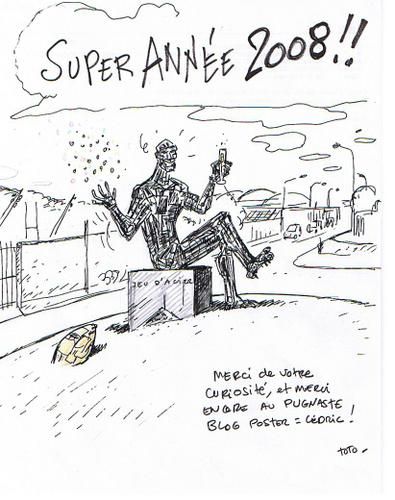 SUPER ANNÉE 2008!!
JEU D'ACIER
MERCI de VOTRE
CURIOSITÉ, et MERCI
ENCORE AU PUGNASTE
BLOG POSTER = CÉDRIC !
TOTO -